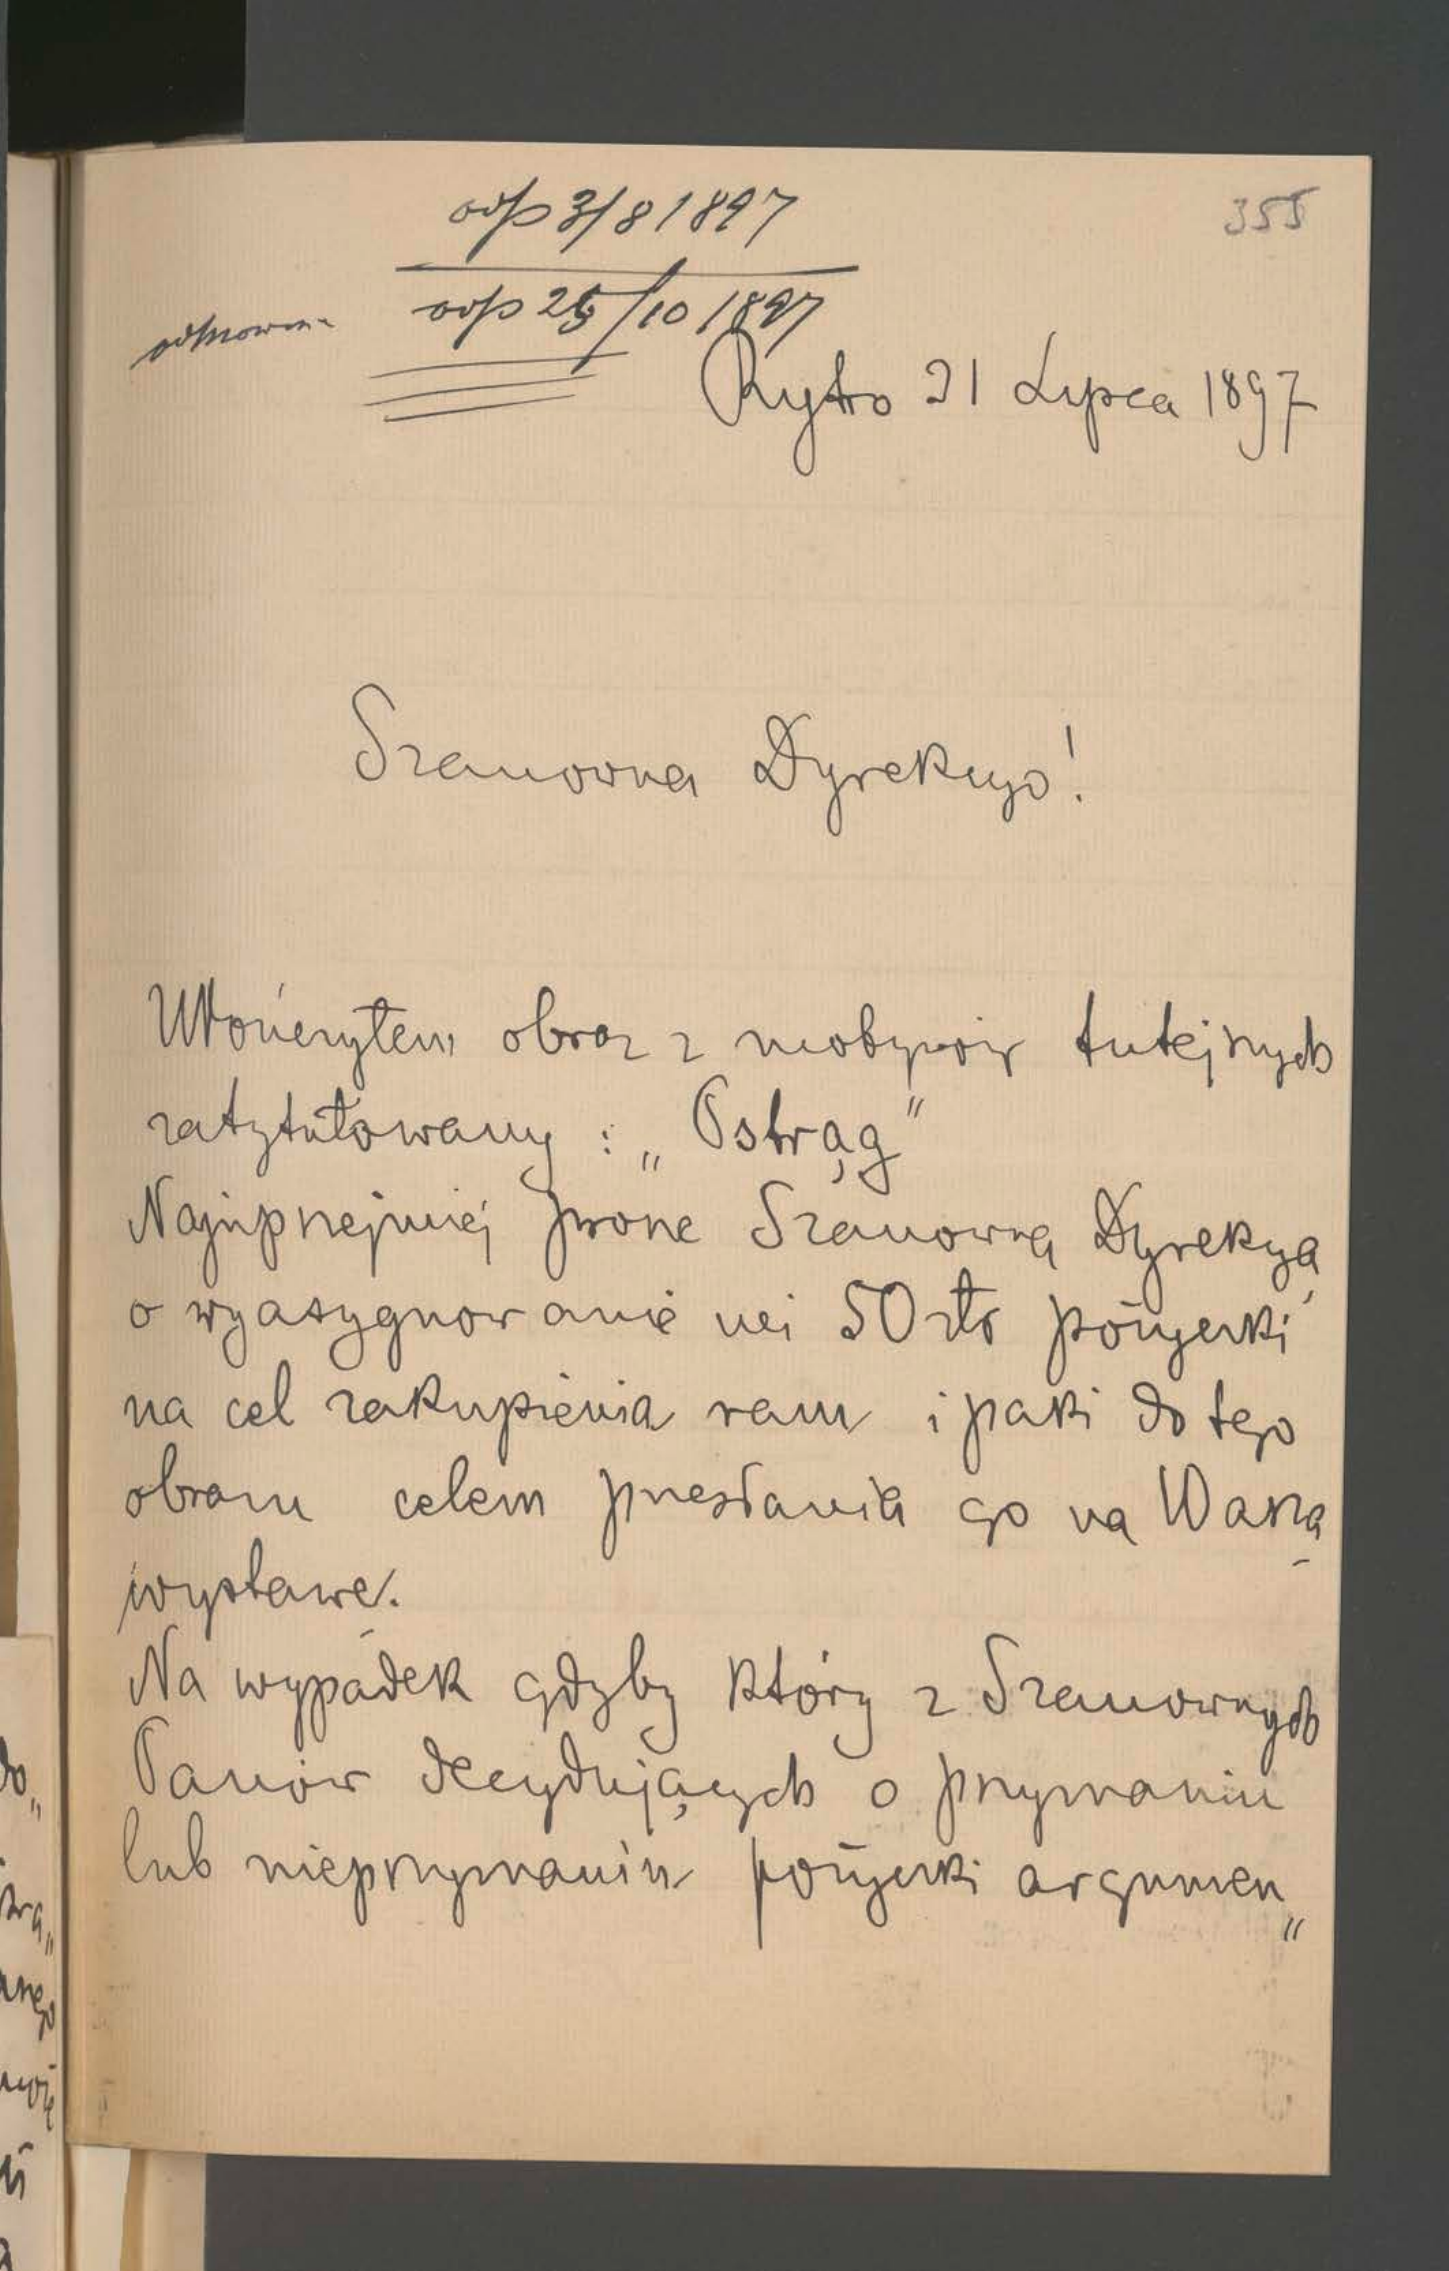 odp 3/8 1897
355
odp 25/10 1897
odmowna
Rytro 21 Lipca 1897
Szanowna Dyrekcyo!
Ukończyłem obraz z motywów tutejszych
zatytułowany : „Ostrąg"
Najuprzejmiej proszę Szanowną Dyrekcyą
o wyasygnowanie mi 50 złr pożyczki
na cel zakupienia ram i paki do tego
obrazu celem przesłania go na Waszą
wystawę.
Na wypadek gdyby który z Szanownych
Panów decydujących o przyznaniu
lub nieprzyznaniu pożyczki argumen„